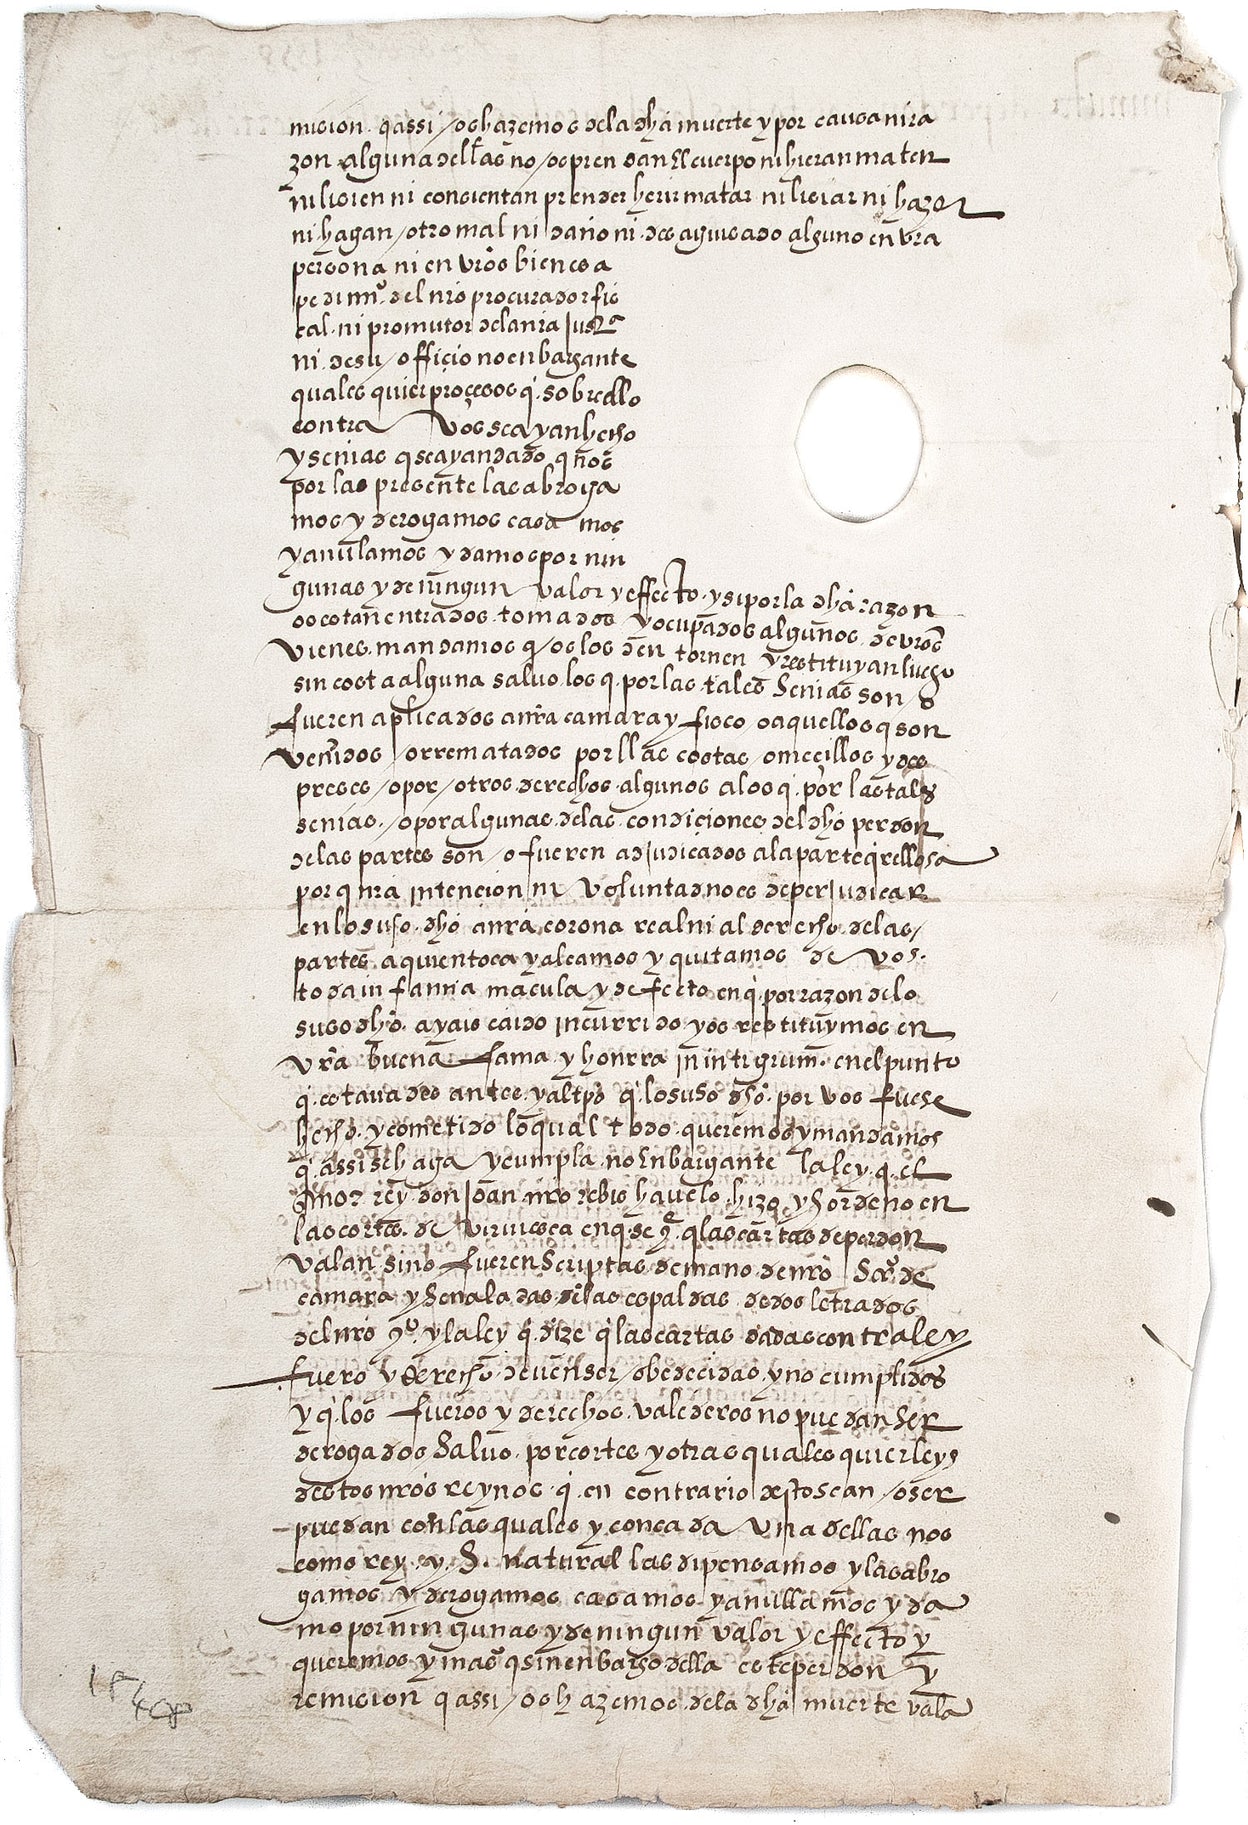 mision q assi / os hazemos dela dha muerte y por causa ni ra
zon alguna dellas no / os prendan el cuerpo ni hieran maten
ni lisien ni consientan prender herir matar ni lisiar ni hazer
ni hagan / otro mal ni daño ni desaguisado alguno en vra
persona ni en vros bienes a
pedimio del nro procurador fis
cal ni promutor dela nra Justa
ni de su / officio no enbargante
quales quier procesos q sobrello
contra vos se ayan hecho
y senias q se ayan dado q nos
por las presente las abroga
mos y derogamos casa mos
y anulamos y damos por nin
gunas y de ningun valor y effecto y si por la dha razon
os estan entrados tomados y ocupados algunos de vros
vienes mandamos q / os los den tornen y restituyan luego
sin costa alguna salvo los q por las tales senias son / o
fueren aplicados a nra camara y fisco o a aquellos q son
venidos / o rrematados por llas costas omecillos y des
preses / o por / otros derechos algunos a los q por las tales
senias / o por algunas delas condiciones del dho perdon
delas partes son / o fueren adjudicados a la parte qrellosa
por q nra intencion ni voluntad no es de perjudicar
en lo suso dho a nra corona real ni al derecho delas /
partes a quien toca y alcamos y quitamos de vos
toda infamia macula y defecto en q por razon delo
suso dho ayais caido incurrido y os restituymos en
vra buena fama y honrra in intigrum en el punto
q estavades antes y al tpo q lo suso dho por vos fuese
hecho y cometido lo qual todo queremos y mandamos
q assi se haga y cumpla no enbargante la ley q el
smor rey don Joan nro rebis havelo hizo y hordeno en
las cortes de virviesca en q se qe q las cartas de perdon
valan sino fueren Scriptas de mano de nro Scro de
camara y Señaladas delas espaldas de dos letrados
del nro qo y la ley q dize q las cartas dadas contra ley
fuero y derecho deven ser / obedecidas y no cumplidas
y q los fueros y derechos valederos no puedan Ser
derogados Salvo por cortes y otras quales quier leys
destos nros reynos q en contrario desto sean / o ser
puedan con las quales y con cada una dellas nos
como rey y S. natural las dipensamos y las abro
gamos y derogamos casamos y anullamos y da
mo por ningunas y de ningun valor y effecto y
queremos y mamos q sin enbargo della este perdon y
remision q assi / os hazemos dela dha muerte vala